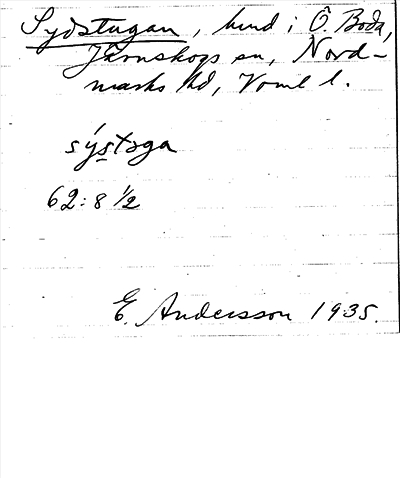 Sydstugan, hmd i Ö. Boda,
Järnskogs sn, Nord-
marks hd, Vrml l.
sýstoga
62:8 ½
E. Andersson 1935.